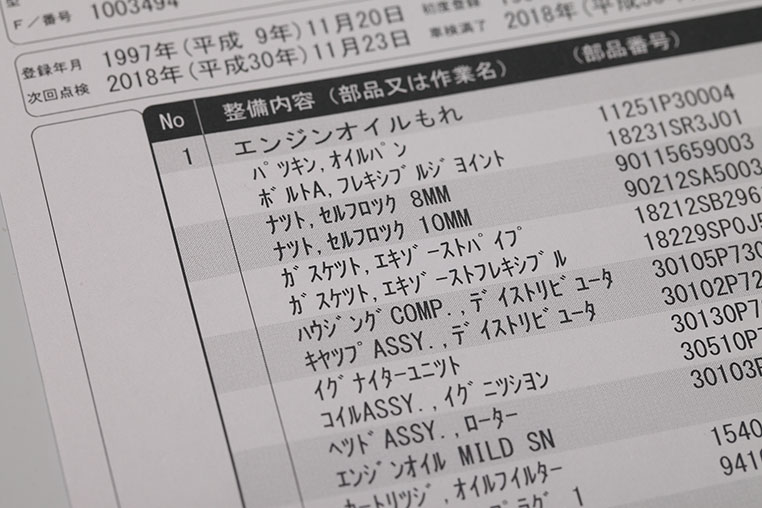 型
F／番号 1003494
初度登録
登録年月 1997年（平成 9年）11月20日
車検満了 2018年（平成30年
次回点検 2018年（平成30年）11月23日
No 整備内容（部品又は作業名） （部品番号）
1 エンジンオイルもれ
パツキン,オイルパン 11251P30004
ボルトA,フレキシブルジヨイント 18231SR3J01
ナツト,セルフロツク 8MM 90115659003
ナツト,セルフロツク 10MM 90212SA5003
ガスケツト,エキゾーストパイプ 18212SB296
ガスケツト,エキゾーストフレキシブル 18229SP0J5
ハウジングCOMP.,デイストリビユータ 30105P730
キヤツプASSY.,デイストリビユータ 30102P72
イグナイターユニツト 30130P7
コイルASSY.,イグニツシヨン 30510P
ヘツドASSY.,ローター 30103P
エンジンオイル MILD SN
カートリツジ,オイルフイルター 1540
プラグ 1 941